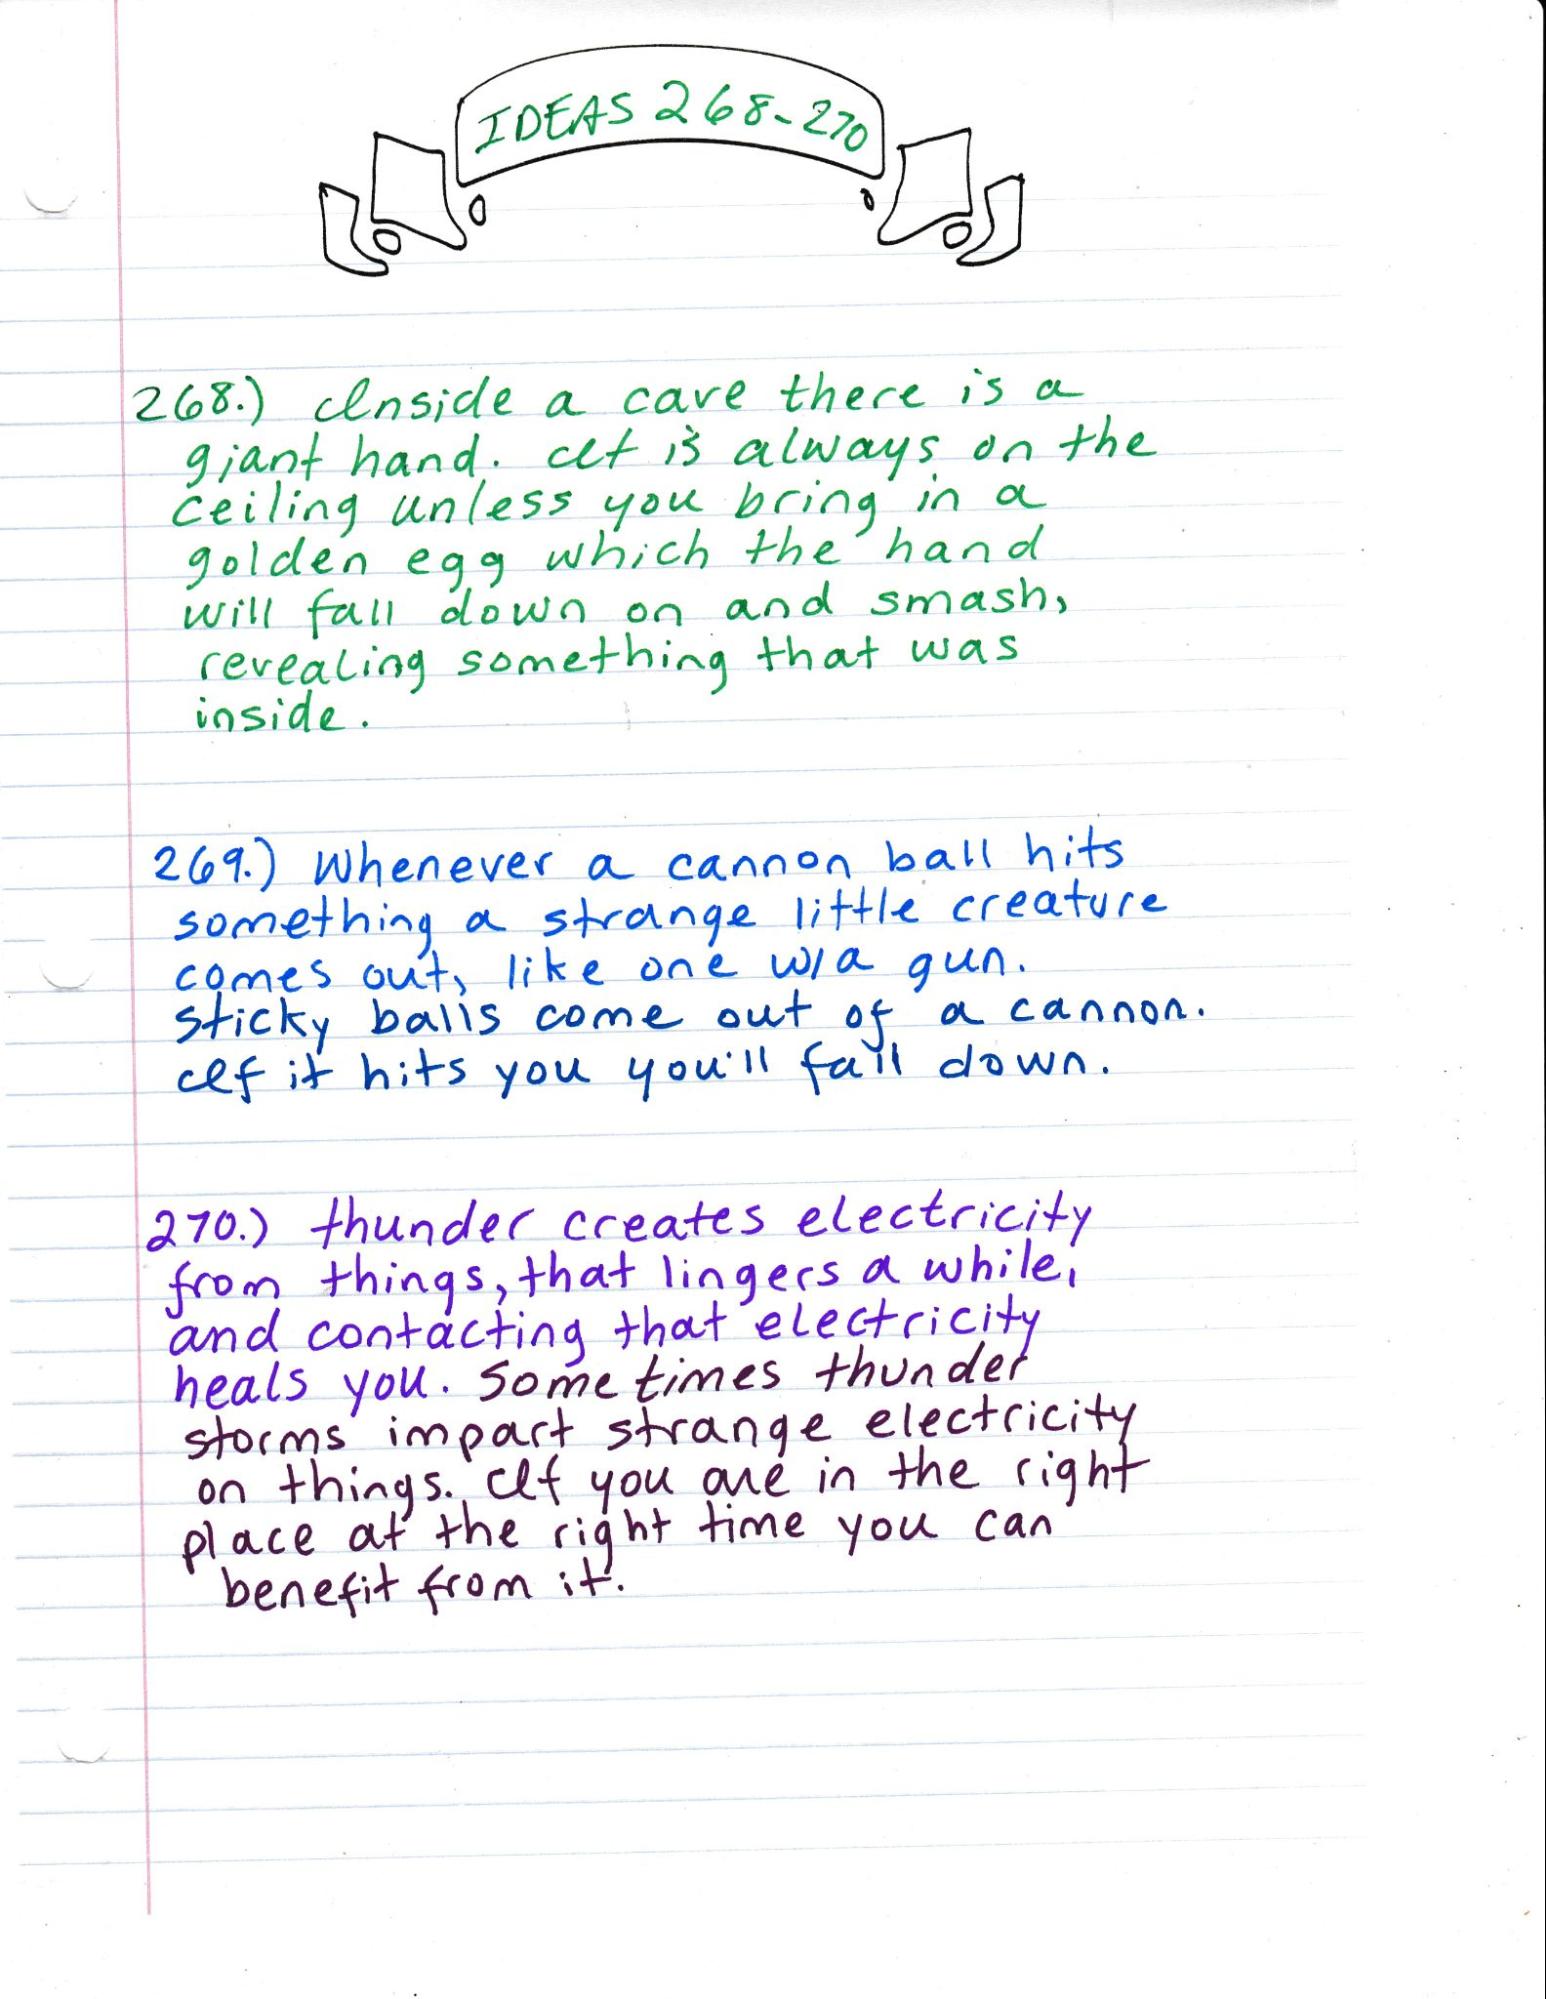 IDEAS 268-270
268.) Inside a cave there is a
giant hand. It is always on the
ceiling unless you bring in a
golden egg which the hand
will fall down on and smash,
revealing something that was
inside.
269.) Whenever a cannon ball hits
something a strange little creature
comes out, like one w/a gun.
Sticky balls come out of a cannon.
If it hits you you'll fall down.
270.) thunder creates electricity
from things, that lingers a while,
and contacting that electricity
heals you. Sometimes thunder
storms impart strange electricity
on things. If you are in the right
place at the right time you can
benefit from it.